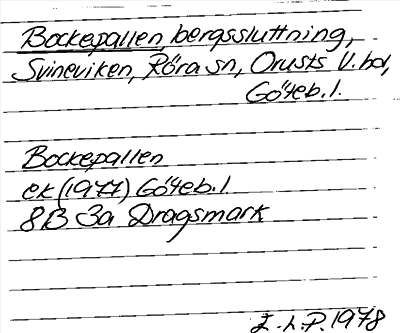 Bockepallen, bergssluttning,
Svineviken, Röra sn, Orusts V. hd,
Göteb. l.
Bockepallen
ek (1977) Göteb. l
8B 3a Dragsmark
E. L. P. 1978